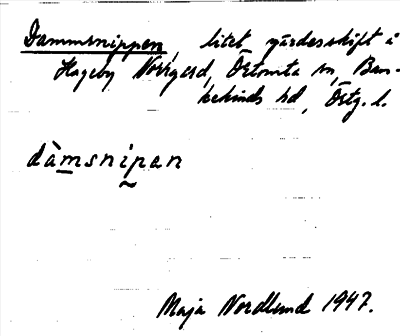 Dammsnippen, litet gärdesskift i
Hageby Norrgård, Örtomta sn, Ban-
kekinds hd, Östg. l.
dàmsnipan
Maja Nordlund 1947.